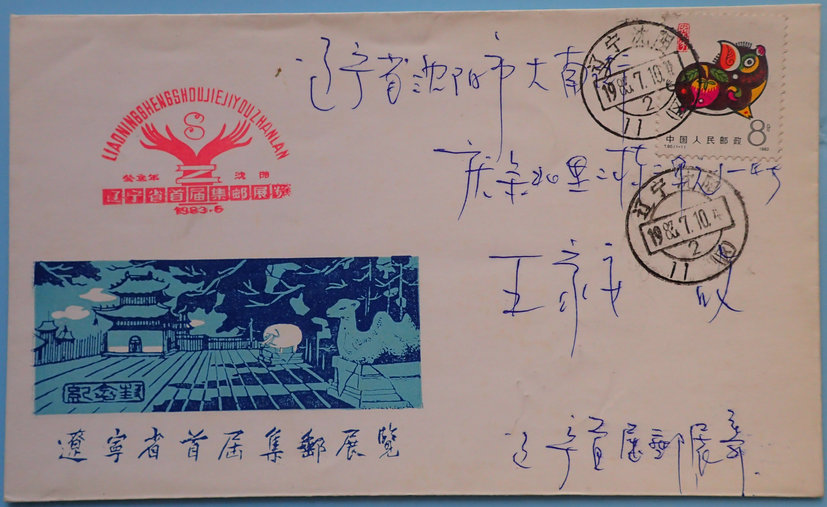 LIAONINGSHENGSHOUJIEJIYOUZHANLAN
S
癸亥年 沈阳
辽宁省首届集邮展览
1983.6
辽宁省沈阳市大南街
王家安 收
辽宁首届邮展寄
辽宁沈阳
1983.7.10.
2
11
中国人民邮政
8分
T.80.(1-1)
1983
辽宁沈阳
1983.7.10.
2
11
紀念封
遼寧省首届集郵展覽